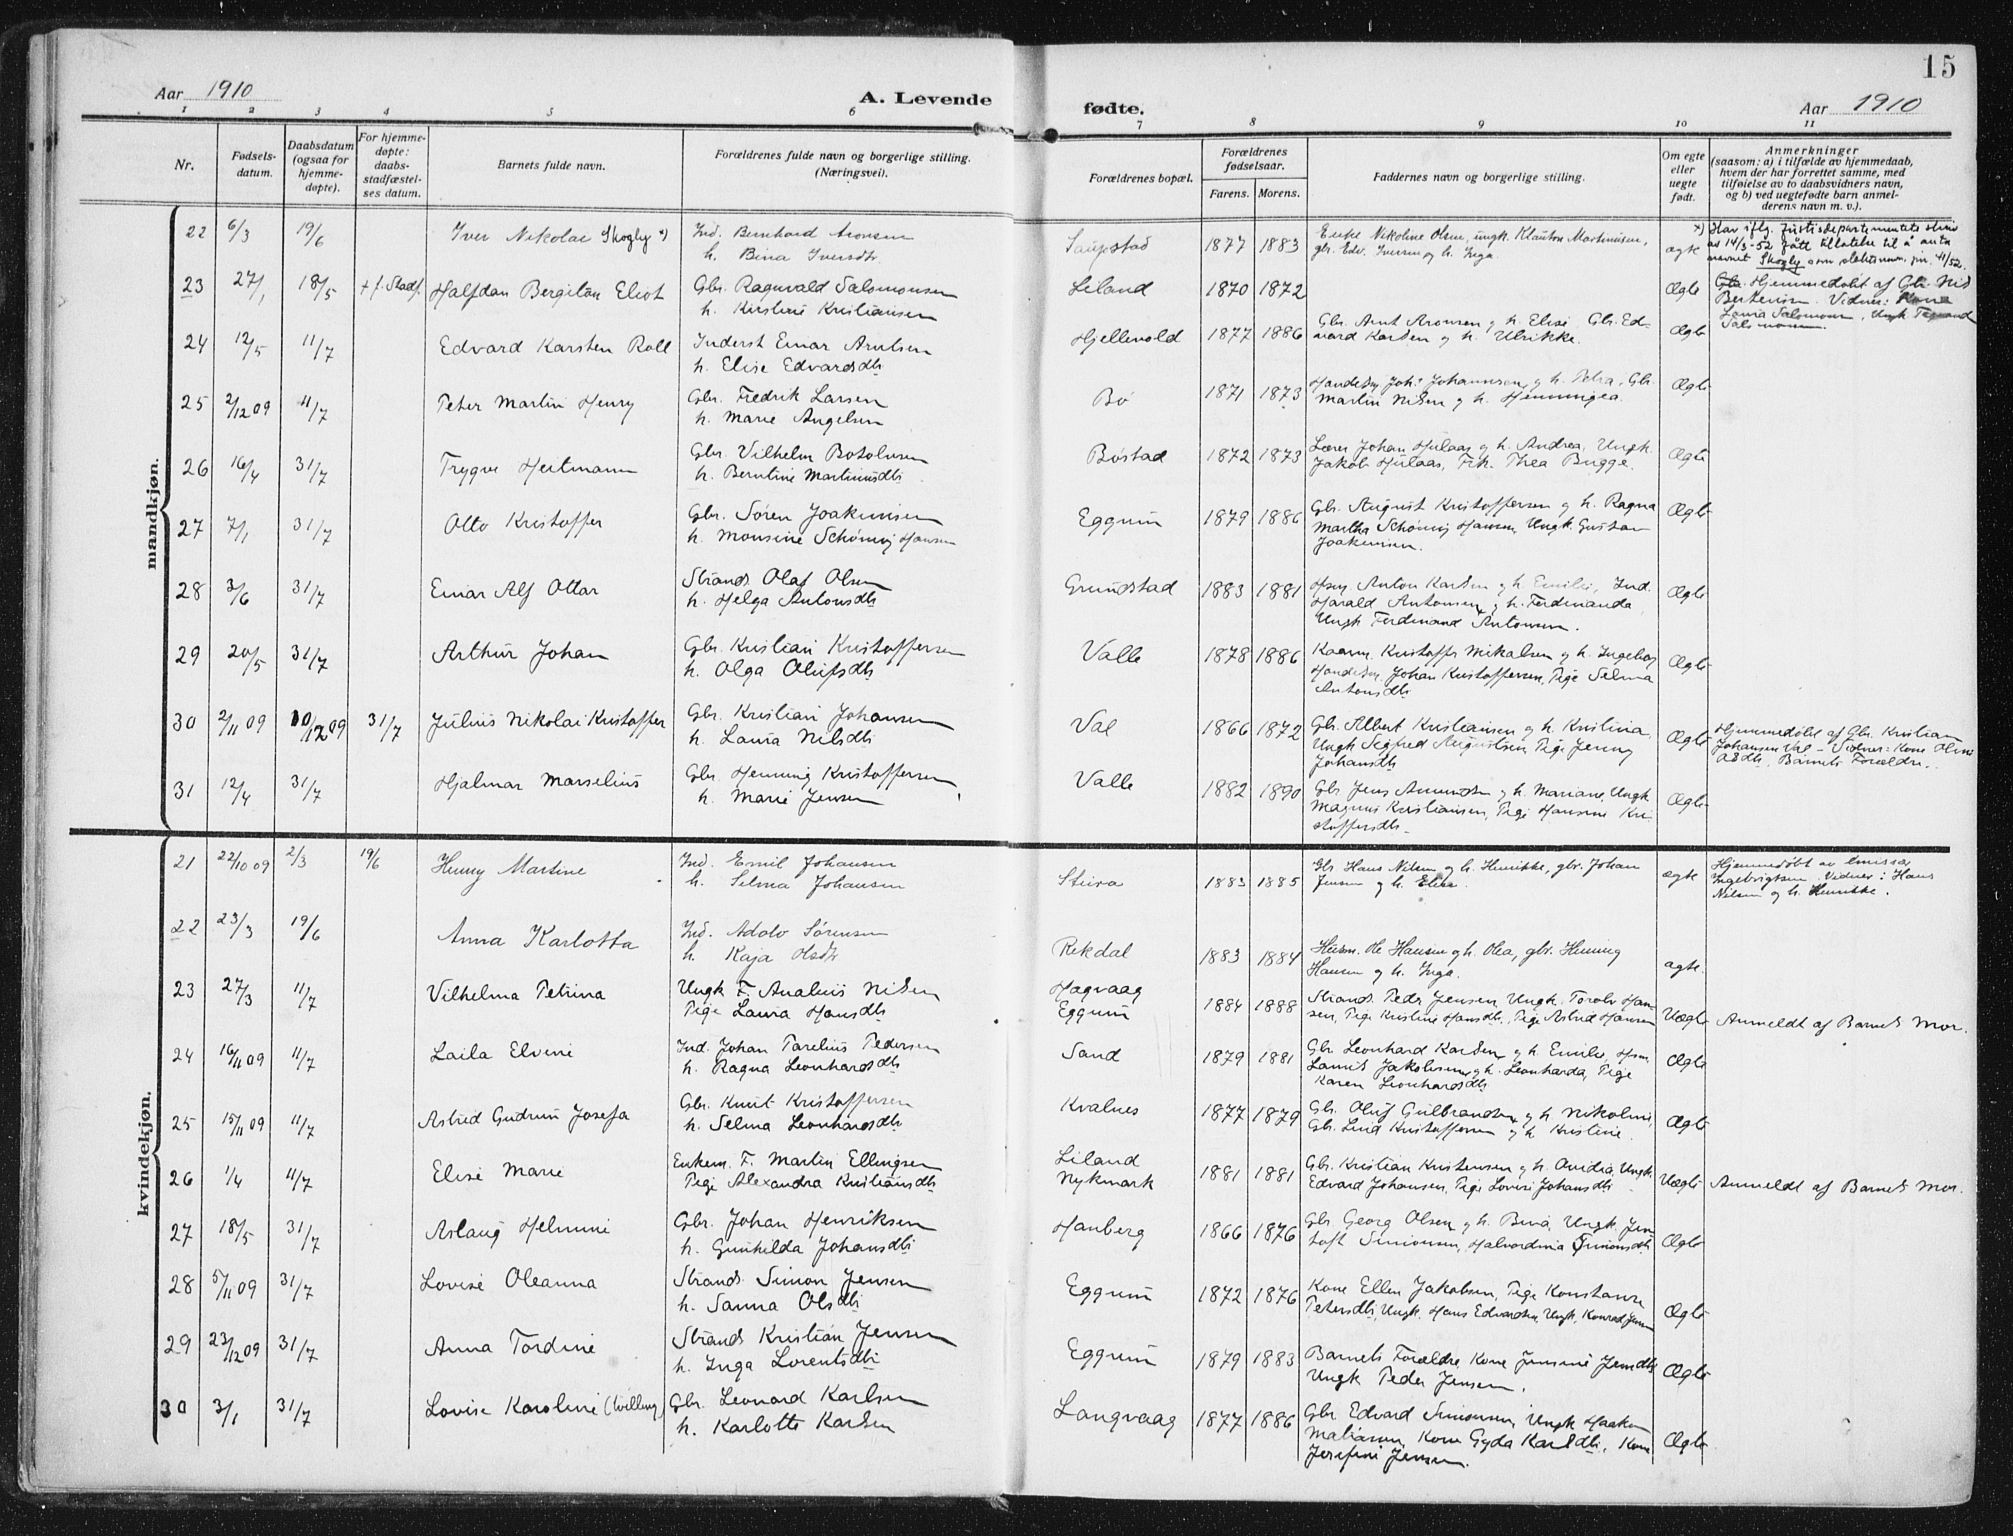 15
Aar 1910
A. Levende
fødte.
Aar 1910
1 2 3 4 5 6 7 8 9 10 11
Nr.
Fødsels-
datum.
Daabsdatum
(ogsaa for
hjemme-
døpte).
For hjemme-
døpte:
daabs-
stadfæstel-
ses datum.
Barnets fulde navn.
Forældrenes fulde navn og borgerlige stilling.
(Næringsvei).
Forældrenes bopæl.
Forældrenes
fødselsaar.
Farens. Morens.
Faddernes navn og borgerlige stilling.
Om egte
eller
uegte
født.
Anmerkninger
(saasom: a) i tilfælde av hjemmedaab,
hvem der har forrettet samme, med
tilføielse av to daabsvidners navn,
og b) ved uegtefødte barn anmel-
derens navn m. v.).
mandkjøn.
22 6/3 19/6 Iver Nikolai Skogly x) Ind. Bernhard Aronsen Saupstad 1877 1883 Enke Nikoline Olsen, ungk. Klaudon Martinusen, ægte x) Har iflg. Justisdepartementets skriv
h. Bina Iversdtr. gbr. Edv. Iversen og h. Inga. av 14/3-52 fått tillatelse til å anta
navnet Skogly som slektsnavn, jnr. 41/52.
23 27/1 18/5 Halfdan Bergiton Eliot Gbr. Ragnvald Salomonsen Liland 1870 1872 Ægte Hjemmedøbt af Gbr. Nils
h. Kirstine Kristiansen Bertensen. Vidner: Kone
Laura Salomonsen, Ungk.
Salomonsen.
24 12/5 11/7 Edvard Karsten Roll Inderst Einar Arntsen Hjellevold 1877 1886 Gbr. Arnt Aronsen og h. Elise Gbr. Ed- Ægte
h. Elise Edvardsdtr vard Karlsen og h. Ulrikke.
25 2/12 09 11/7 Peter Martin Henry Gbr. Fredrik Larsen Bø 1871 1873 Handelsm. Joh. Johannesen og h. Petra, Gbr. Ægte
h. Marie Angelsen Martin Nilsen og h. Henningea.
26 16/4 31/7 Trygve Heitmann Gbr. Vilhelm Botolvsen Bøstad 1872 1873 Lærer Johan Hulaas og h. Andrea, Ungk. Ægte
h. Berntine Martinusdtr. Jakob Hulaas, Frk. Thea Bugge.
27 7/1 31/7 Otto Kristoffer Gbr. Søren Joakimsen Eggum 1879 1886 Gbr. August Kristoffersen og h. Ragna Ægte
h. Monsine Schöning Hansen Martha Schöning Hansen, Ungk. Gustav
Joakimsen.
28 3/6 31/7 Einar Alf Ottar Strands. Olaf Olsen Grundstad 1883 1881 Hsm. Anton Karlsen og h. Emilie, Ind. Ægte
h. Helga Antonsdtr Harald Antonsen og h. Ferdinanda,
Ungk Ferdinand Antonsen.
29 20/5 31/7 Arthur Johan Gbr. Kristian Kristoffersen Valle 1878 1886 Kaarm. Kristoffer Mikalsen og h. Ingeborg Ægte
h. Olga Olufsdtr Handelsm. Johan Kristoffersen, Pige Selma
Antonsdtr.
30 2/11 09 10/12 09 31/7 Julius Nikolai Kristoffer Gbr. Kristian Johansen Val 1866 1872 Gbr. Albert Kristiansen og h. Kristina, Ægte Hjemmedøbt af Gbr. Kristian
h. Laura Nilsdtr Ungk Sigfred Augustsen, Pige Jenny Johansen Val - Vidner: Kone
Johansdtr Barnets Forældre.
31 12/4 31/7 Hjalmar Marselius Gbr. Henning Kristoffersen Valle 1882 1890 Gbr Jens Amundsen og h. Mariane, Ungk Ægte
h. Marie Jensen Magnus Kristiansen, Pige Hansine Kri-
stoffersdtr.
kvindekjøn.
21 22/10 09 2/3 19/6 Henny Martine Ind. Emil Johansen Steira 1883 1885 Gbr. Hans Nilsen og h. Henrikke, gbr. Johan ægte Hjemmedøbt av emissær
h. Selma Johansen Jensen og h. Elisa. Ingebrigtsen. Vidner: Hans
Nilsen og h. Henrikke.
22 23/3 19/6 Anna Karlotta Ind. Adolv Sørensen Rekdal 1883 1884 Husm. Ole Hansen og h. Olea, gbr. Henning ægte.
h. Kaja Olsdtr Hansen og h. Inga.
23 27/3 11/7 Vilhelma Petrina Ungk F. Analius Nilsen Hagvaag 1884 1888 Strands. Peder Jensen, Ungk. Torolv Han- Uægte Anmeldt af Barnets Mor.
Pige Laura Hansdtr Eggum sen, Pige Kristine Hansdtr, Pige Astrid Hansen
24 16/11 09 11/7 Laila Elvine Ind. Johan Parelius Pedersen Sand 1879 1881 Gbr. Leonhard Karlsen og h. Emilie, Hsm. Ægte
h. Ragna Leonhardsdtr Laurits Jakobsen og h. Leonharda, Pige
Karen Leonhardsdtr
25 15/11 09 11/7 Astrid Gudrun Josefa Gbr. Knut Kristoffersen Kvalnes 1877 1879 Gbr. Oluf Gulbrandsen og h Nikoline, Ægte
h. Selma Leonhardsdtr Gbr. Lind Kristoffersen og h. Kristine.
26 1/4 11/7 Elise Marie Enkem. F. Martin Ellingsen Liland 1881 1881 Gbr. Kristian Kristensen og h. Ovidia, Ungk. Uægte Anmeldt af Barnets Mor.
Pige Alexandra Kristiansdtr Nykmark Edvard Johansen, Pige Lovise Johansdtr
27 18/5 31/7 Aslaug Helmine Gbr. Johan Henriksen Hanberg 1866 1876 Gbr. Georg Olsen og h. Bina, Ungk. Jen- Ægte
h. Gunhilda Johansdtr toft Simonsen, Halvordina Simonsdtr
28 5/11 09 31/7 Lovise Oleanna Strands. Simon Jensen Eggum 1872 1876 Kone Ellen Jakobsen, Pige Konstanse Ægte
h. Sanna Olsdtr Petersdtr, Ungk. Hans Edvardsen, Ungk. Konrad Jensen
29 23/12 09 31/7 Anna Tordine Strands Kristian Jensen Eggum 1879 1883 Barnets Forældre, Kone Jensine Jensdtr Ægte
h. Inga Lorentsdtr Ungk Peder Jensen.
30 3/1 31/7 Lovise Karoline (tvilling) Gbr. Leonard Karlsen Langvaag 1877 1886 Gbr Edvard Simonsen, Ungk Haakon Ægte
h. Karlotte Karlsen Matiasen, Kone Gyda Karlsdtr, Kone
Josefine Jensen.